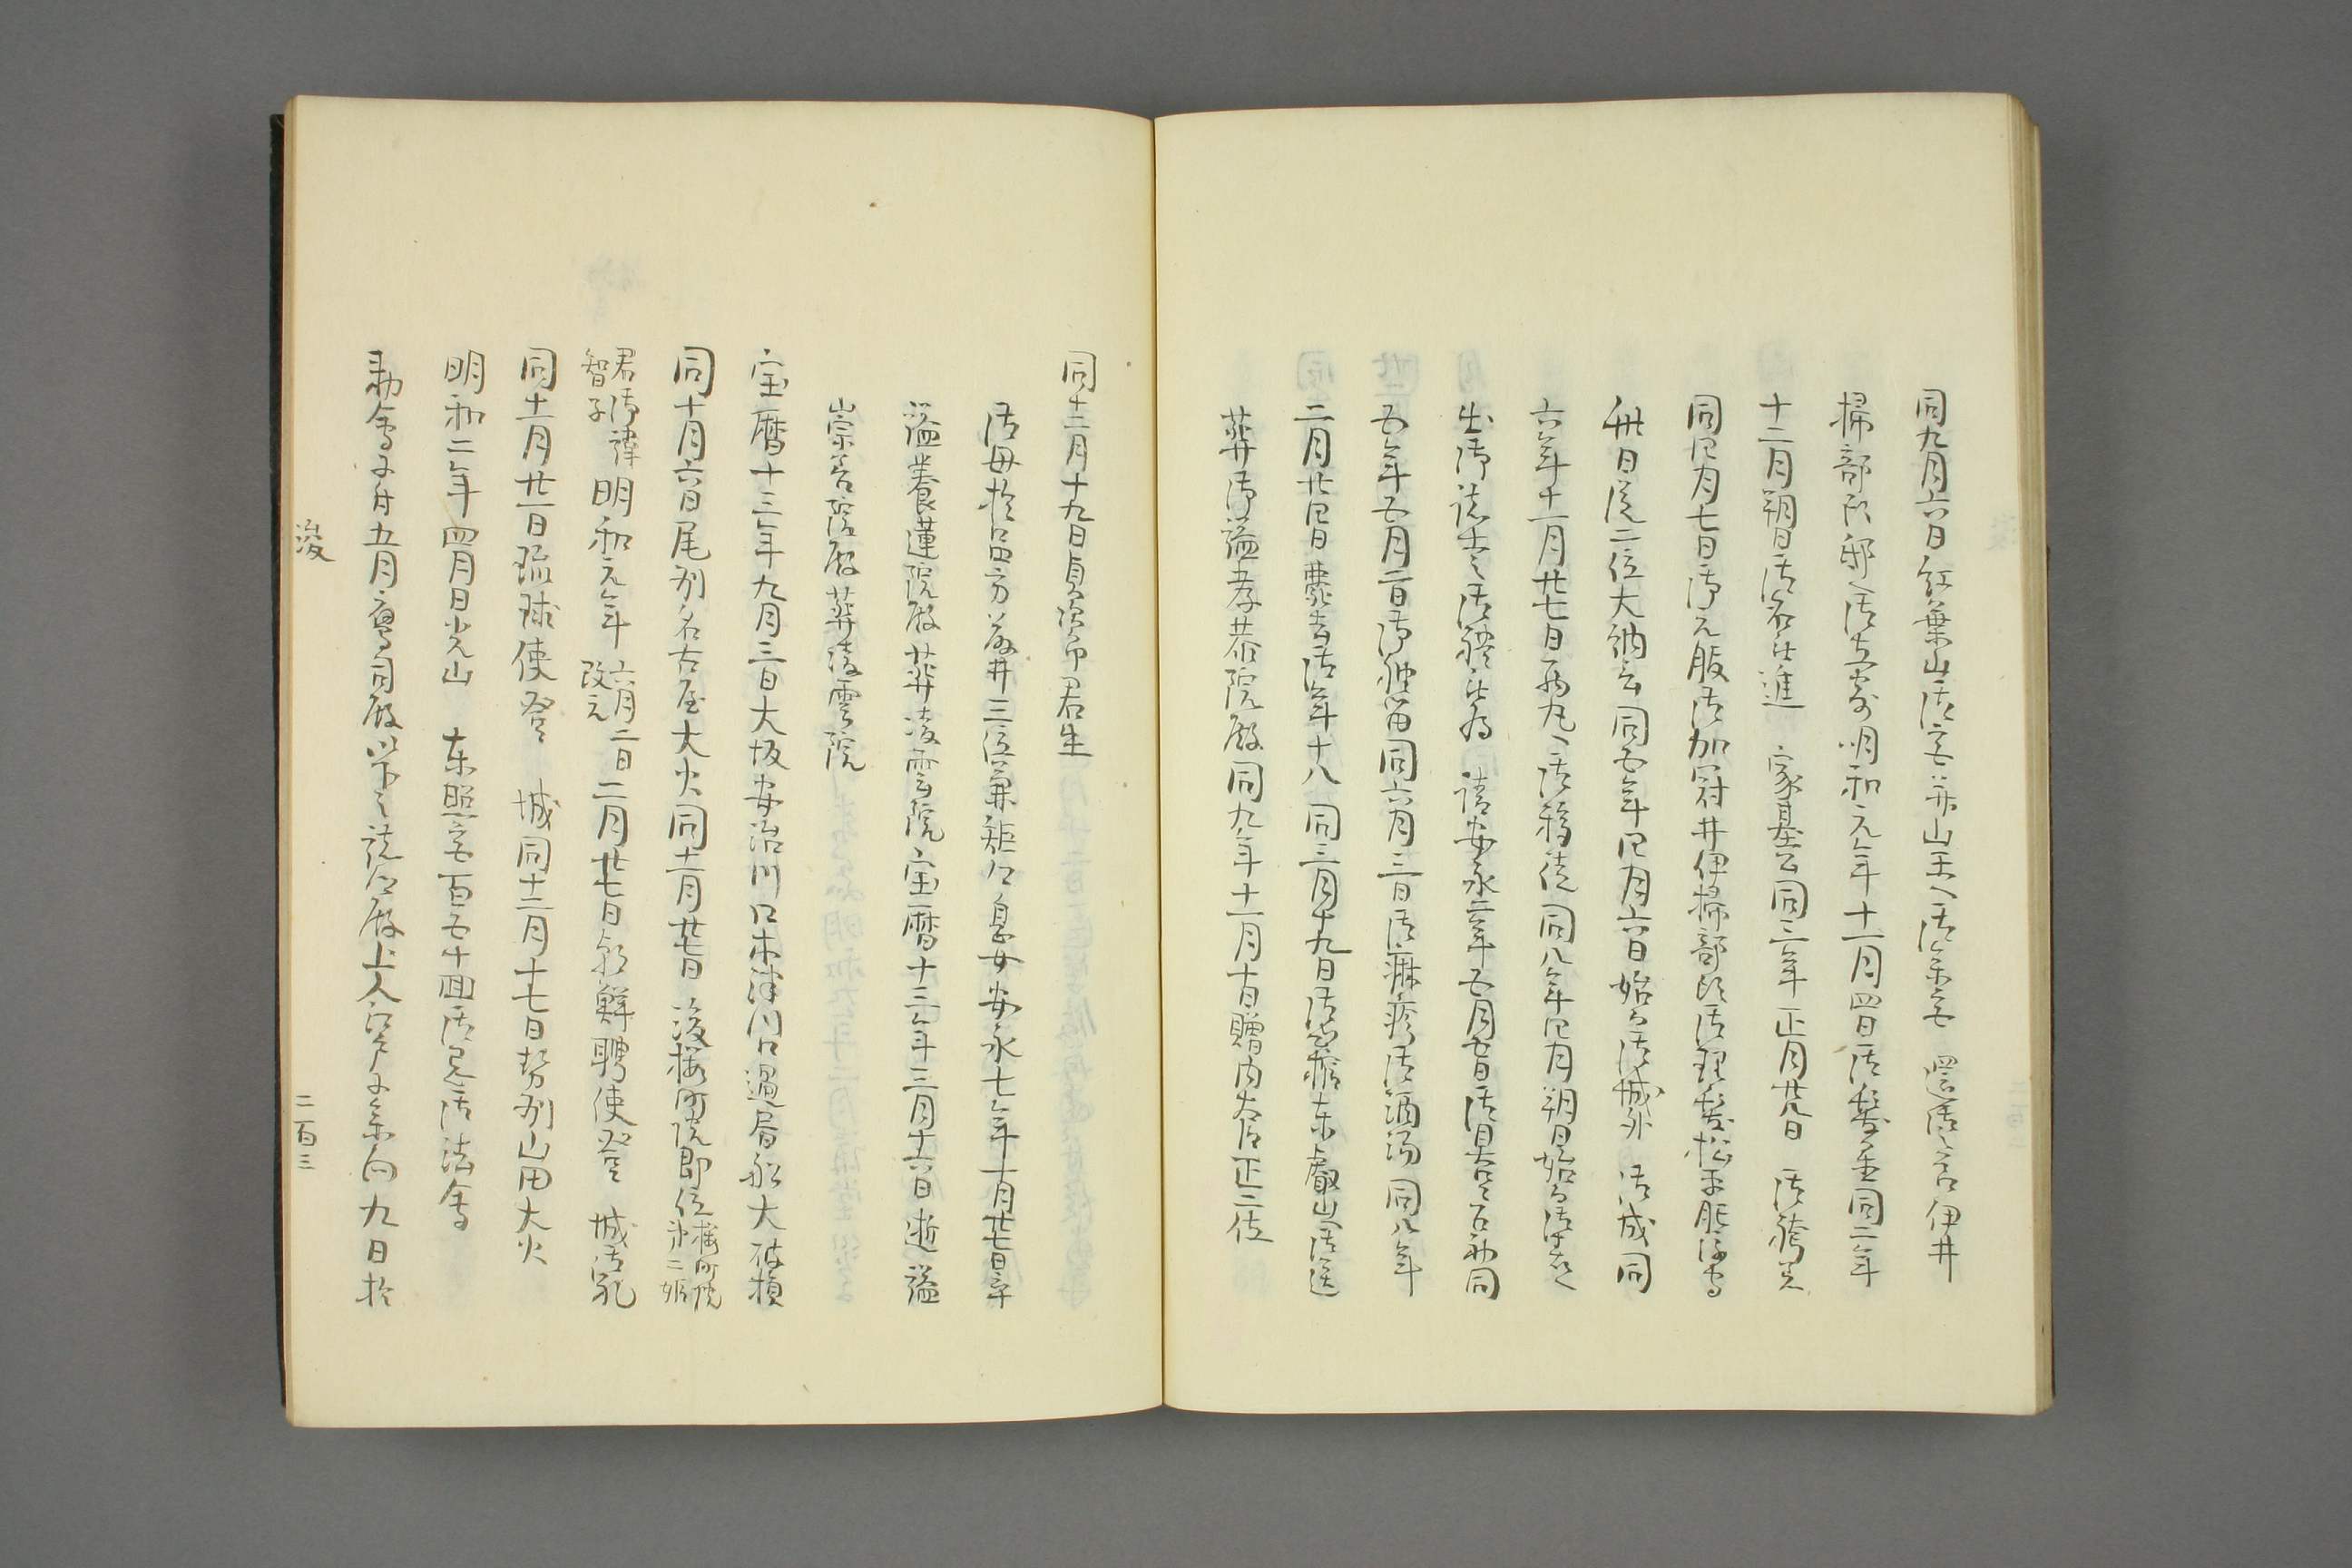 同九月六日紅葉山御宮并山王へ御参宮 還御之上伊井
掃部頭邸へ御立寄明和元年十一月四日御髪置同二年
十二月朔日御名乗進 家基公同三年正月廿八日 御袴着
同四月七日御元服御加冠井伊掃部頭御理髪松平肥後守
卅日従二位大納言同五年四月六日始而御城外 御成同
六年十二月廿七日西丸へ御移徒同八年四月朔日始而御表へ
出御諸士之御礼被為 請安永二年五月廿日御具足召初同
五年五月二日御袖留同六月三日御麻疹御酒湯同八年
二月廿四日薨去御年十八同三月十九日御出棺東叡山へ御送
葬御諡孝恭院殿同九年十一月十日贈内大臣正二位
同十二月十九日貞次郎君生
御母於品方藤井三位兼矩公息女安永七年十月廿七日卒
諡養蓮院殿葬凌雲院宝暦十三年三月十六日逝諡
崇善院殿葬凌雲院
宝暦十三年九月三日大坂安治川口木津川口過書船大破損
同十月六日尾州名古屋大火同十一月廿七日 後桜町院即位桜町院第二姫
君御諱智子明和元年六月二日改元二月廿七日朝鮮聘使登 城御礼
同十一月廿一日琉球使登 城同十二月十七日勢州山田大火
明和二年四月日光山 東照宮百五十回御忌御法会
勅会ニ付五月鷹司殿以下之諸公殿上人江戸ニ参向九日於
浚
二百三